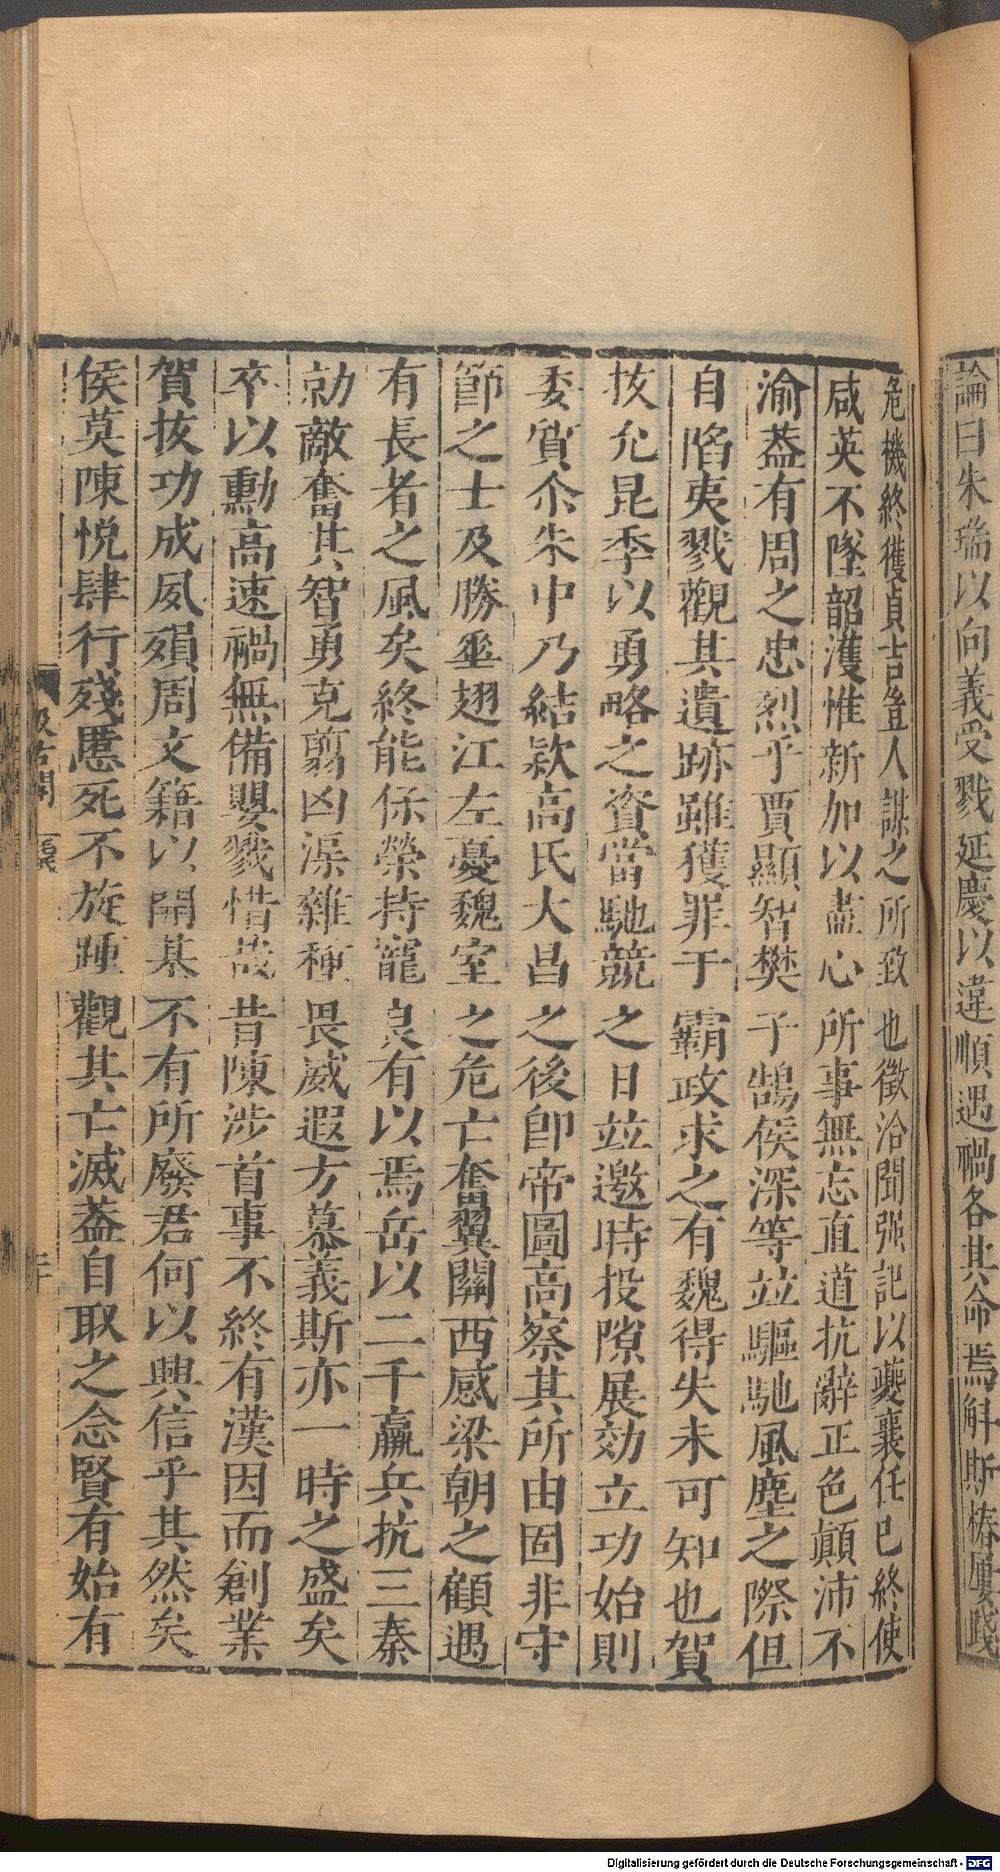 論曰朱瑞以向義受戮延慶以違順遇禍各其命焉斛斯椿屢踐
危機終獲貞吉豈人謀之所致也徵洽聞强記以夔襄任已終使
咸英不墜韶濩惟新加以盡心所事無忘直道抗辭正色顛沛不
渝葢有周之忠烈乎賈顯智樊子鵠侯深等竝驅馳風塵之際但
自陷夷戮觀其遺跡雖獲罪于霸政求之有魏得失未可知也賀
拔允昆季以勇略之資當馳競之日竝邀時投隙展効立功始則
委質尒朱中乃結欵高氏大昌之後卽帝圖高察其所由固非守
節之士及勝垂翅江左憂魏室之危亡奮翼關西感梁朝之顧遇
有長者之風矣終能保榮持寵良有以焉岳以二千羸兵抗三秦
勍敵奮其智勇克翦凶渠雜種畏威遐方慕義斯亦一時之盛矣
卒以勳高速禍無備嬰戮惜哉昔陳涉首事不終有漢因而創業
賀拔功成夙殞周文籍以開基不有所廢君何以興信乎其然矣
侯莫陳悅肆行殘慝死不旋踵觀其亡滅葢自取之念賢有始有
汲古閣
二十
Digitalisierung gefördert durch die Deutsche Forschungsgemeinschaft - DFG